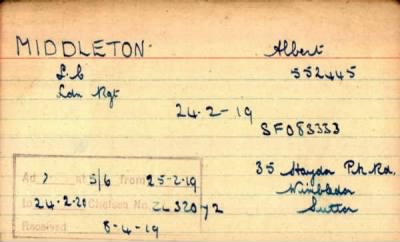 MIDDLETON. Albert
L.C 552445
Ldn Rgt
24-2-19
SF083333
35 Haydn Pk. Rd.
Wimbledon
Sutton
Ad ? at 5/6 from 25-2-19
to 24.2.20 Chelsea No.
Received 8-4-19